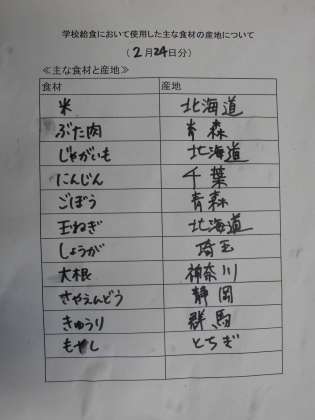 学校給食において使用した主な食材の産地について
(2月24日分)
≪主な食材と産地≫
食材 産地
米 北海道
ぶた肉 青森
じゃがいも 北海道
にんじん 千葉
ごぼう 青森
玉ねぎ 北海道
しょうが 埼玉
大根 神奈川
さやえんどう 静岡
きゅうり 群馬
もやし とちぎ